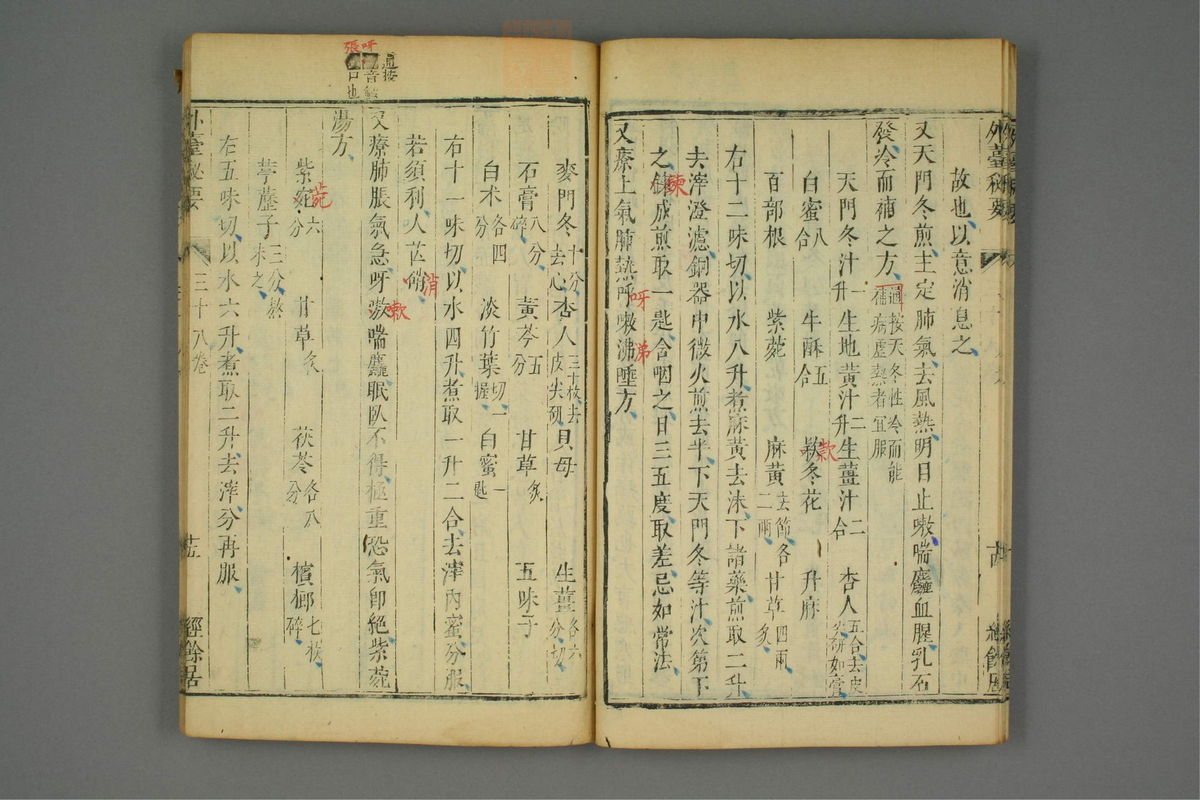 故也以意消息之
又天門冬煎主定肺氣去風熱明目止嗽喘麤血腥乳石
發冷而補之方
通按天冬性冷而能
補病虛熱者宜服
天門冬汁一升 生地黃汁二升 生薑汁二合 杏人五合去皮尖研如膏
白蜜八合 牛酥五合 款冬花 升麻
百部根 紫菀 麻黃去節各二兩 甘草四兩炙
右十二味切以水八升煮麻黃去沫下諸藥煎取二升
去滓澄濾銅器中微火煎去半下天門冬等汁次第下
之煉成煎取一匙含咽之日三五度取差忌如常法
又療上氣肺熱呼嗽沸唾方
外臺秘要
經餘居
通按
呀音
張口也
麥門冬十分去心 杏人三十枚去皮尖研 貝母 生薑各六分切
石膏八分碎 黃芩五分 甘草炙 五味子
白朮各四分 淡竹葉切一握 白蜜一匙
右十一味切以水四升煮取一升二合去滓內蜜分服
若須利人芒硝
又療肺脹氣急呀嗽喘麤眠臥不得極重恐氣卽絕紫菀
湯方
紫菀六分 甘草炙 茯苓各八分 檳榔七枚碎
葶藶子三分熬末之
右五味切以水六升煮取二升去滓分再服
外臺秘要
三十八卷
經餘居